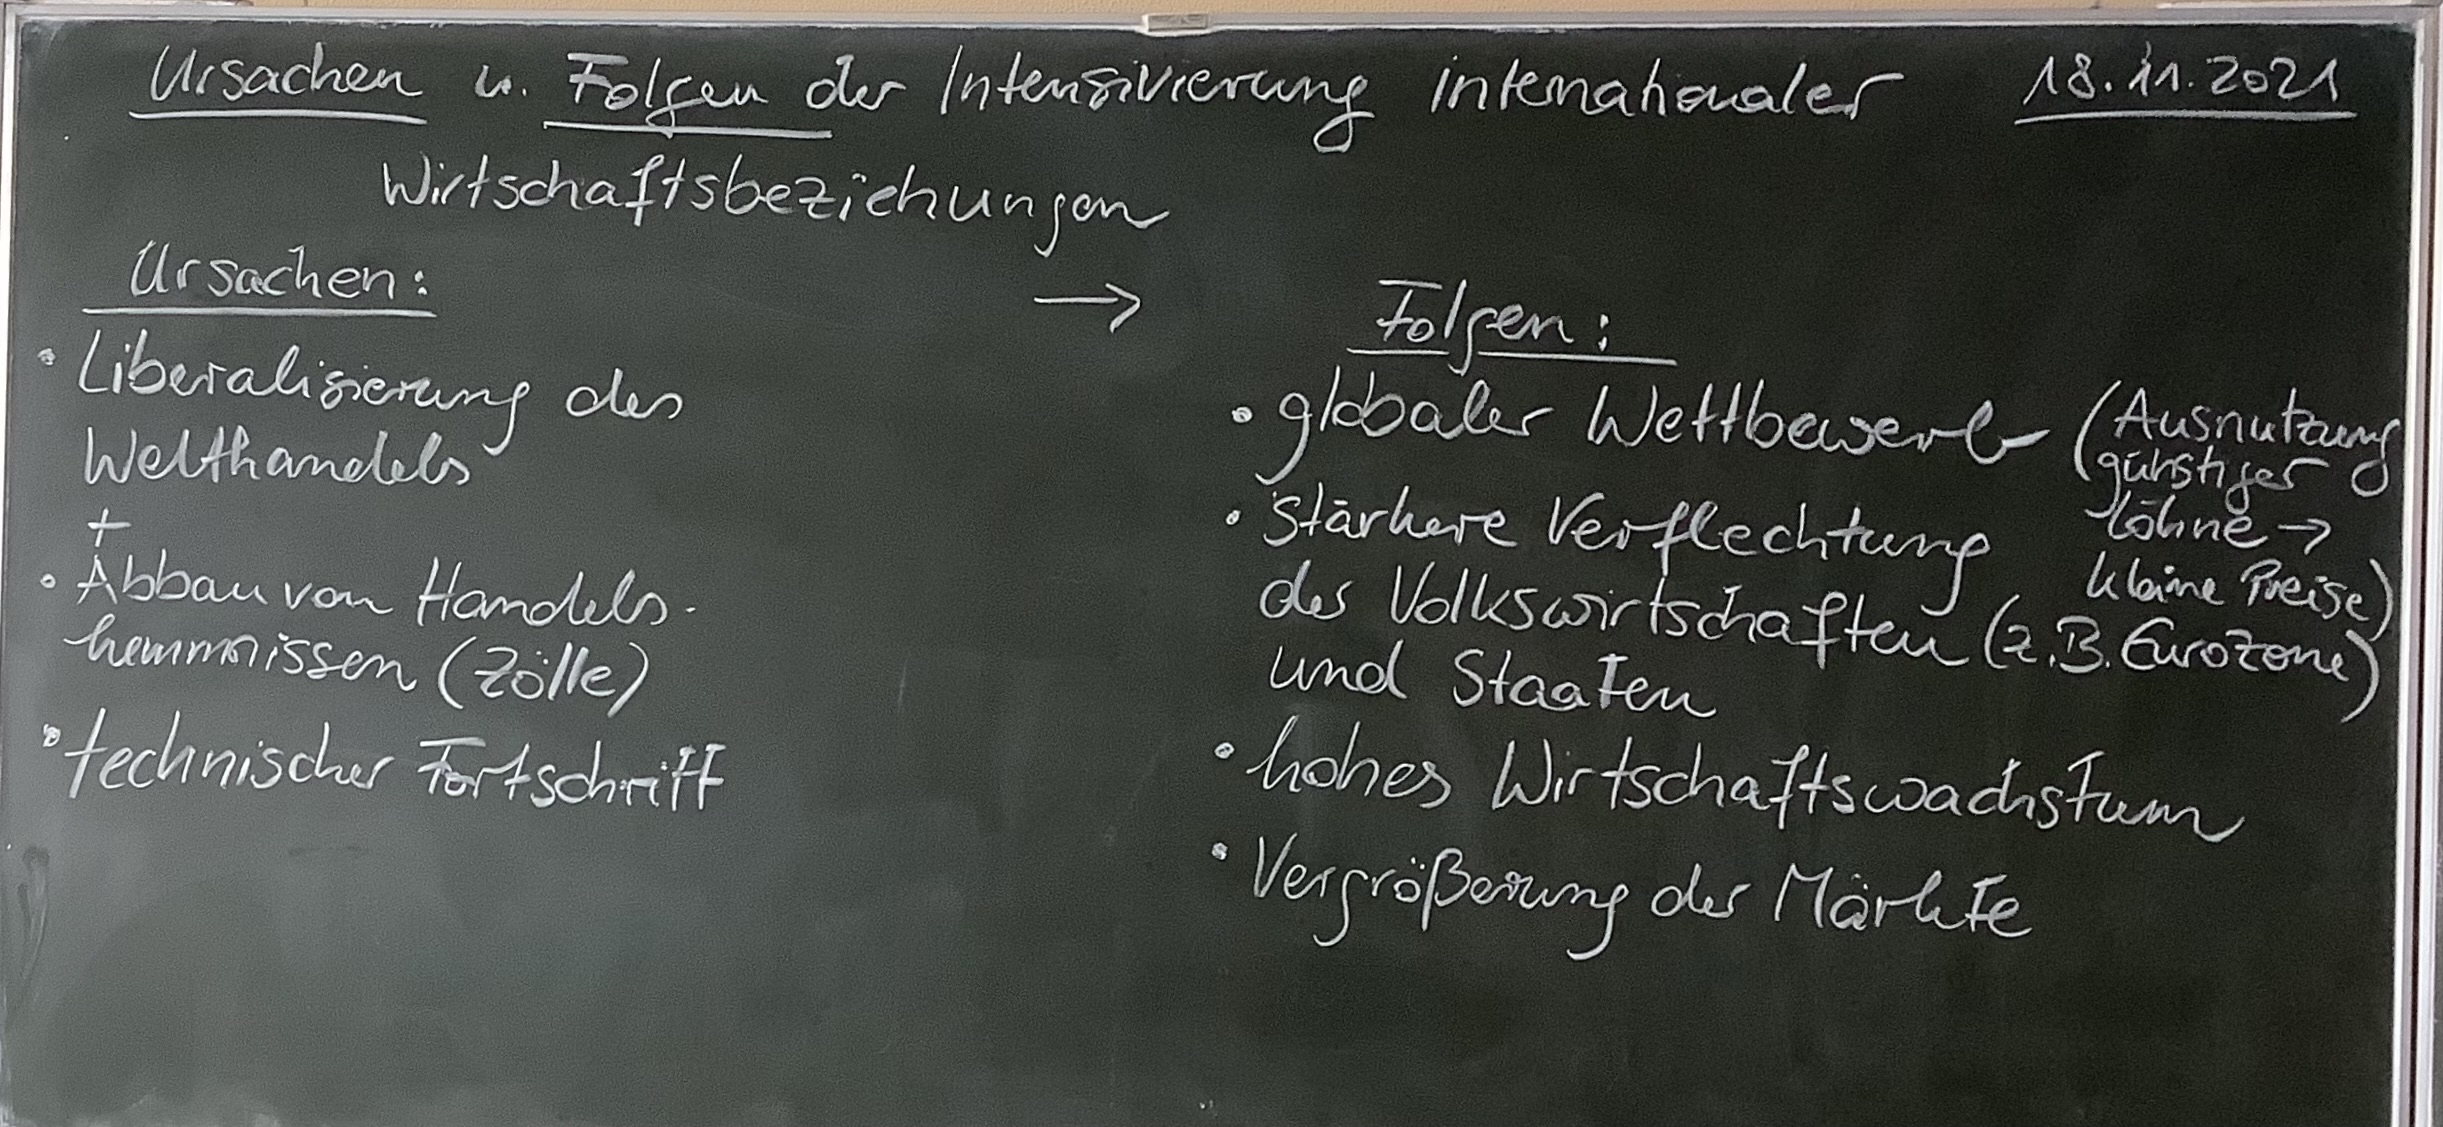 Ursachen u. Folgen der Intensivierung internationaler 18.11.2021
Wirtschaftsbeziehungen
Ursachen:
• Liberalisierung des
Welthandels
+
• Abbau von Handels-
hemmnissen (Zölle)
• technischer Fortschritt
→
Folgen:
• globaler Wettbewerb (Ausnutzung
günstiger
Löhne →
kleine Preise)
• stärkere Verflechtung
der Volkswirtschaften (z.B. Eurozone)
und Staaten
• hohes Wirtschaftswachstum
• Vergrößerung der Märkte